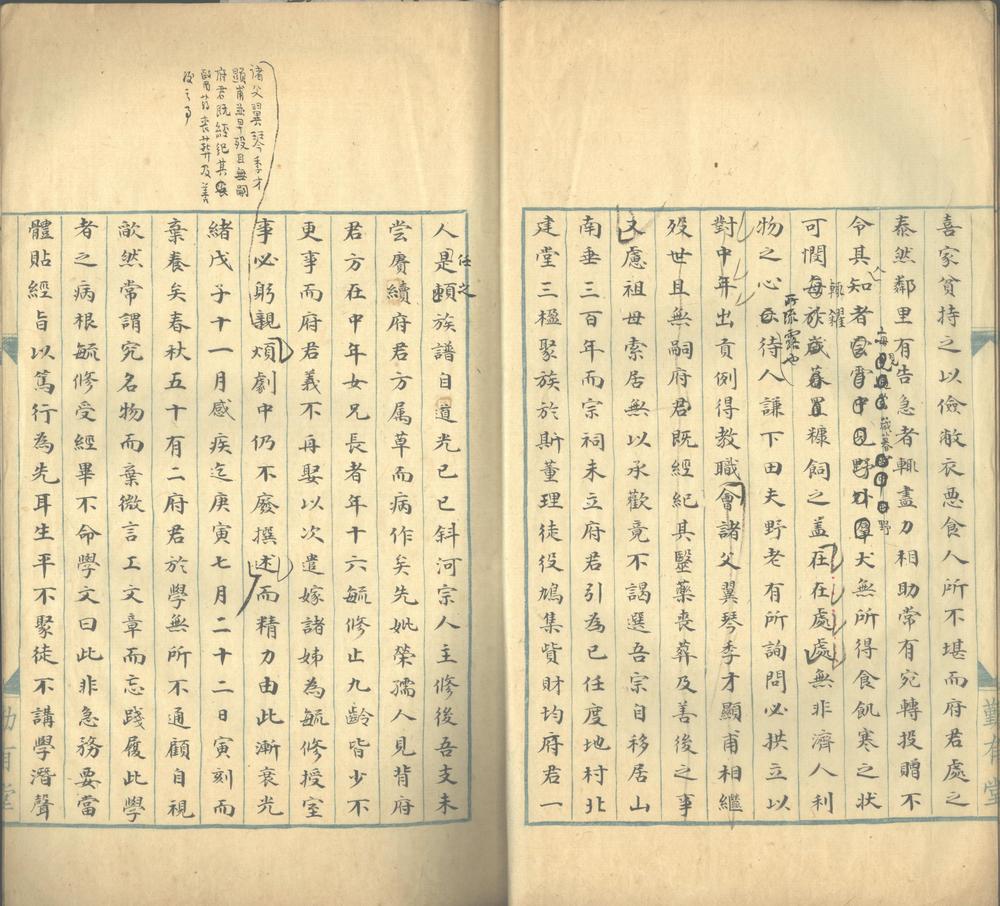 喜家貧持之以儉敝衣惡食人所不堪而府君處之
泰然鄰里有告急者輒盡力相助常有宛轉投贈不
令其知者雪宵中見野外群犬無所得食飢寒之狀
人
每見
歲暮
野
可憫每於歲暮置糠飼之蓋在在處處無非濟人利
輒糴
物之心待人謙下田夫野老有所詢問必拱立以
所流露也
對中年出貢例得教職會諸父翼琴季才顯甫相繼
歿世且無嗣府君既經紀其醫藥喪葬及善後之事
又慮祖母索居無以承歡竟不謁選吾宗自移居山
南垂三百年而宗祠未立府君引為己任度地村北
建堂三楹聚族於斯董理徒役鳩集貲財均府君一
勤有堂
諸父翼琴季才
顯甫並早歿且無嗣
府君既經紀其
醫葯喪葬及善
後之事
人是賴族譜自道光己巳斜河宗人主修後吾支未
任之
嘗賡續府君方属草而病作矣先妣榮孺人見背府
君方在中年女兄長者年十六毓修止九齡皆少不
更事而府君義不再娶以次遣嫁諸姊為毓修授室
事必躬親煩劇中仍不廢撰述而精力由此漸衰光
緒戊子十一月感疾迄庚寅七月二十二日寅刻而
棄養矣春秋五十有二府君於學無所不通顧自視
歉然常謂究名物而棄微言工文章而忘踐履此學
者之病根毓修受經畢不命學文曰此非急務要當
體貼經旨以篤行為先耳生平不聚徒不講學潛聲